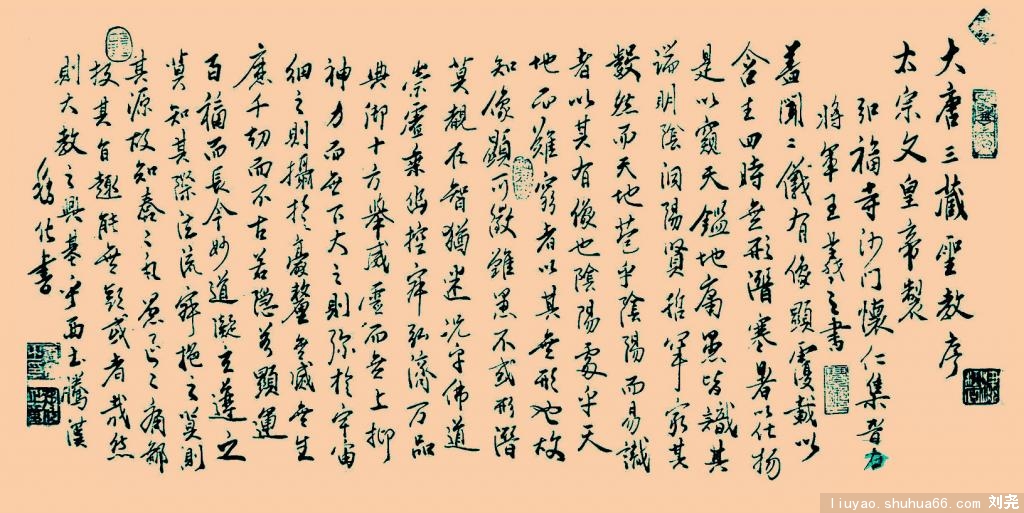 大唐三藏聖教序
太宗文皇帝製
弘福寺沙门懷仁集晉右
將軍王羲之書
蓋聞二儀有像顯覆載以
含生四時無形潛寒暑以化物
是以窺天鑑地庸愚皆識其
端明陰洞陽賢哲罕窮其
數然而天地苞乎陰陽而易識
者以其有像也陰陽處乎天
地而難窮者以其無形也故
知像顯可徵雖愚不惑形潛
莫覩在智猶迷况乎佛道
崇虛乘幽控寂弘濟万品
典御十方舉威靈而無上抑
神力而無下大之則弥於宇宙
細之則攝於毫釐無滅無生
歷千劫而不古若隱若顯運
百福而長今妙道凝玄遵之
莫知其際法流寂挹之莫則
其源故知蠢々凡愚區々庸鄙
投其旨趣能無疑惑者哉然
則大教之興基乎西土騰漢
書
liuyao.shuhua66.com 刘尧